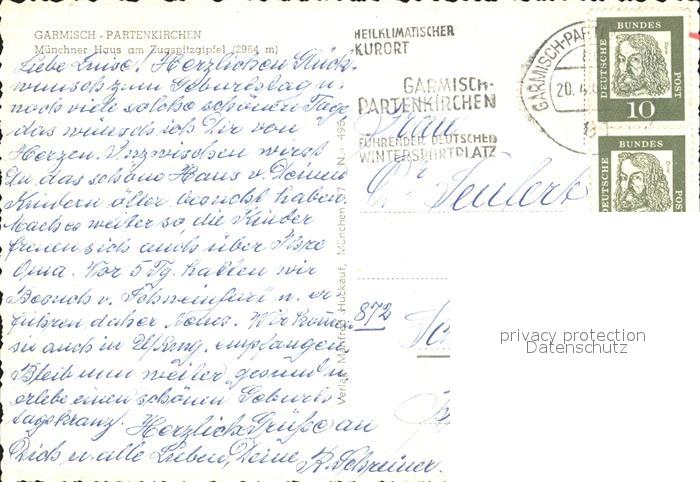 GARMISCH - PARTENKIRCHEN
Münchner Haus am Zugspitzgipfel (2964 m)
Liebe Luise! Herzlichen Glück-
wunsch zum Geburtstag u.
noch viele solche schönen Tage
das wünsch ich Dir von
Herzen. Inzwischen wirst
Du das schöne Haus v. Deinen
Kindern öfter besucht haben.
Mach es weiter so die Kinder
freuen sich auch über Ihre
Oma. Vor 5 Tg. hatten wir
Besuch v. Schweinfurt u. er
fuhren daher Neues. Wir konnten
sie auch in empfangen
Bleib nun weiter gesund u.
erlebe einen schönen Geburts
tagskranz. Herzlich Grüße an
Dich u. alle Lieben, Deine R. Schreiner.
Verlag Manfred Huckauf, München 27 Nr. 496
HEILKLIMATISCHER
KURORT
GARMISCH-
PARTENKIRCHEN
FÜHRENDER DEUTSCHER
WINTERSPORTPLATZ
GARMISCH-PAR
20. 4.
DEUTSCHE BUNDES POST
10
DEUTSCHE BUNDES POST
Frau
Seulert
872
privacy protection
Datenschutz